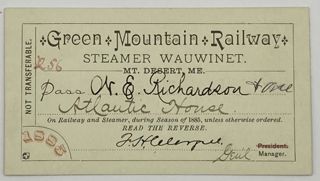 NOT TRANSFERABLE.
Green Mountain Railway
STEAMER WAUWINET.
MT. DESERT, ME.
Pass N. E. Richardson & one
Atlantic House.
On Railway and Steamer, during Season of 1885, unless otherwise ordered.
READ THE REVERSE.
President.
Genl Manager.
1885